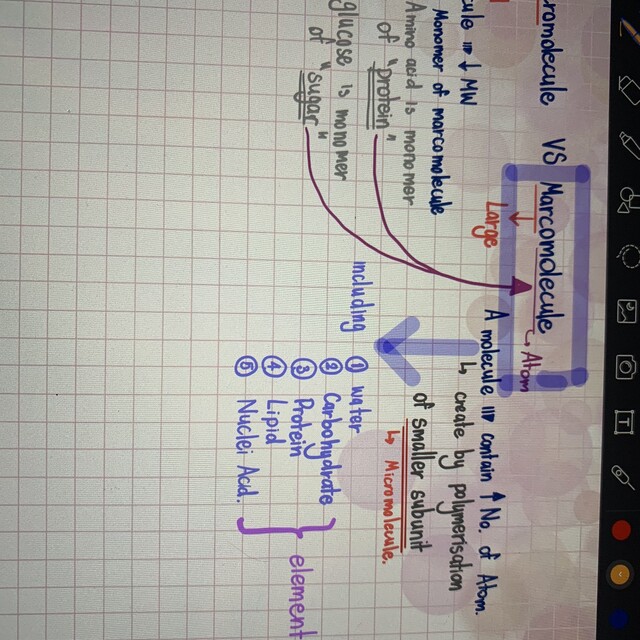 cromolecule VS Marcomolecule
↳ Atom
Large
cule ⇒ ↓ MW
Monomer of marcomolecule
Amino acid is monomer
of "protein"
glucose is monomer
of "sugar"
A molecule ⇒ contain ↑ No. of Atom.
↳ create by polymerisation
of smaller subunit
↳ Micromolecule.
including ① water
② Carbohydrate
③ Protein
④ Lipid
⑤ Nuclei Acid.
element